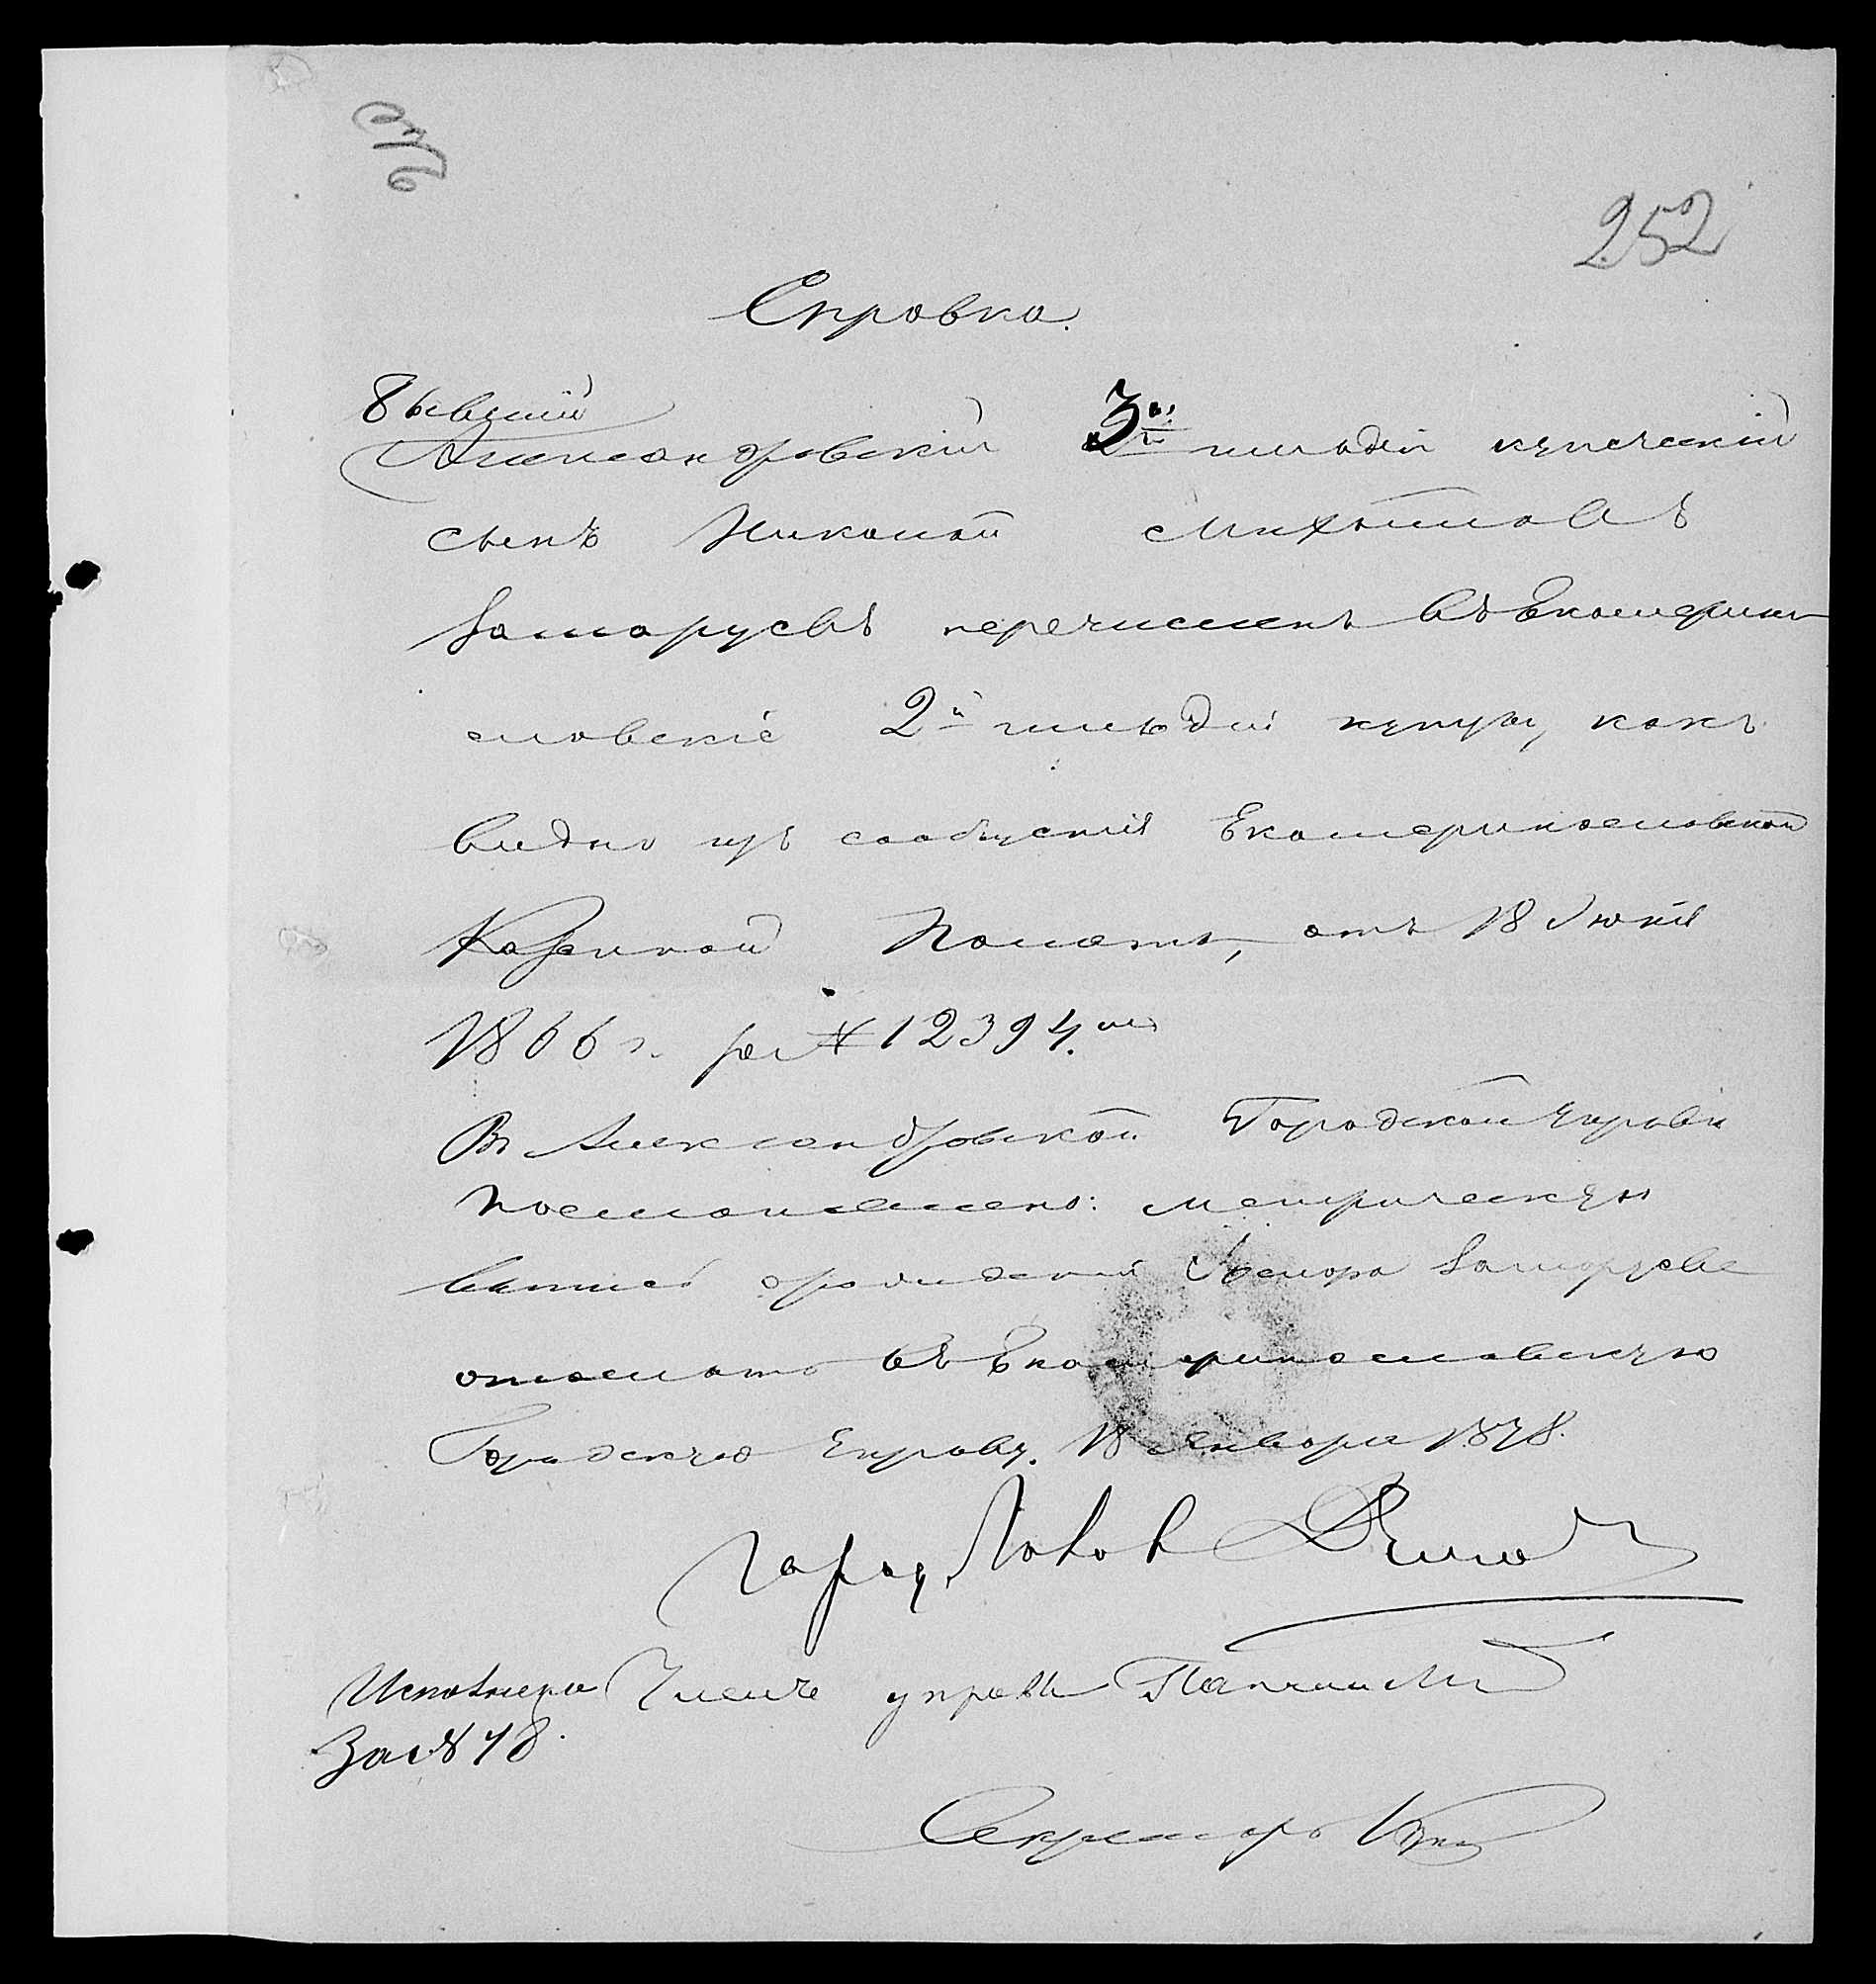 252
Справка.
Бывшій
Александровскій 3й гильдіи купеческій
сынъ Николай Михайловъ
перечисленъ въ Екатерино-
славскіе 2й гильдіи купцы, какъ
видно изъ сообщенія Екатеринославской
Казенной Палаты, отъ 18 Іюня
1866 г. за № 12394.
Въ Александровской Городской Управѣ
постановлено: метрическую
выпись о рожденіи
отослать въ Екатеринославскую
Городскую Управу. 18 января 1878.
Город. Голова
Исполнено Членъ управы
За № 48.
Секретарь